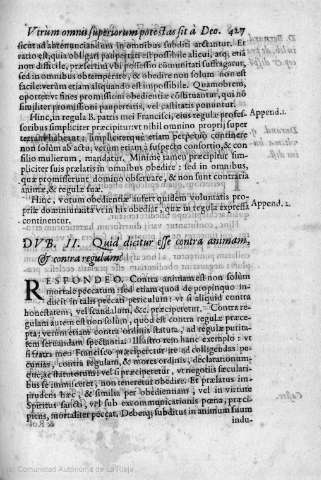 Vtrum omnis superiorum potestas sit à Deo. 427
sicut ad abrenunciandum in omnibus subditi arctantur. Et
ratio est, quia obligari paupertati est possibile alicui, atq; etiã
non difficile, præsertim vbi possessio cõmunitati suffragatur,
sed in omnibus obtemperare, & obedire non solum non est
facile: verùm etiam aliquando est impossibile. Quamobrem,
opotet: vt sines promissioni obedientiæ cõstituantur, qui nõ
similiter promissioni paupertatis, vel castitatis ponuntur.
Hinc, in regula B. patris mei Francisci, eius regulæ profes-
soribus simpliciter præcipitur: vt nihil omnino proprij super
terram habeant: & simpliciter etiam perpetuò continere
non solùm ab actu, verùm etiam à suspecto consortio, & con
silio mulierum, mandatur. Minimè tamen præcipitur sim-
pliciter suis prælatis in omnibus obedire: sed in omnibus,
quæ promisserunt domino obseruare, & non sunt contraria
animæ, & regulæ suæ.
Append. 1.
Hinc, votum obedientiæ aufert quidem voluntatis pro-
priæ dominium: at vt in his obediat, quæ in regula expressa
continentur.
Append. 2.
DVB. II. Quid dicitur esse contra animam,
& contra regulam?
RESPONDEO. Contra animam est non solùm
mortale peccatum: sed etiam quod de propinquo in
ducit in talis peccati periculum: vt si aliquid contra
honestatem, vel scandalum, &c. præciperetur. Contra re-
gulam autem est non solùm, quod est contra regulæ præce-
pta, verùm etiam contra ordinis statuta, ad regulæ purita-
tem seruandam spectantia. Illustro rem hanc exemplo: vt
si fratri mei Francisco præcipitur ire ad colligendas pe-
cunias, contra regulam, & mores ordinis, declarationum-
que, ac statutorum: vel si præciperetur, vt negotiis sæculari-
bus se immisceret, non teneretur obedire. Et prælatus im-
prudens hæc, & similia per obedientiam, vel in virtute
Spiritus sancti, vel sub excommunicationis pœna, præci-
piens, mortaliter peccat. Debetq; subditus in animum suum
indu-
Comunidad Autónoma de La Rioja